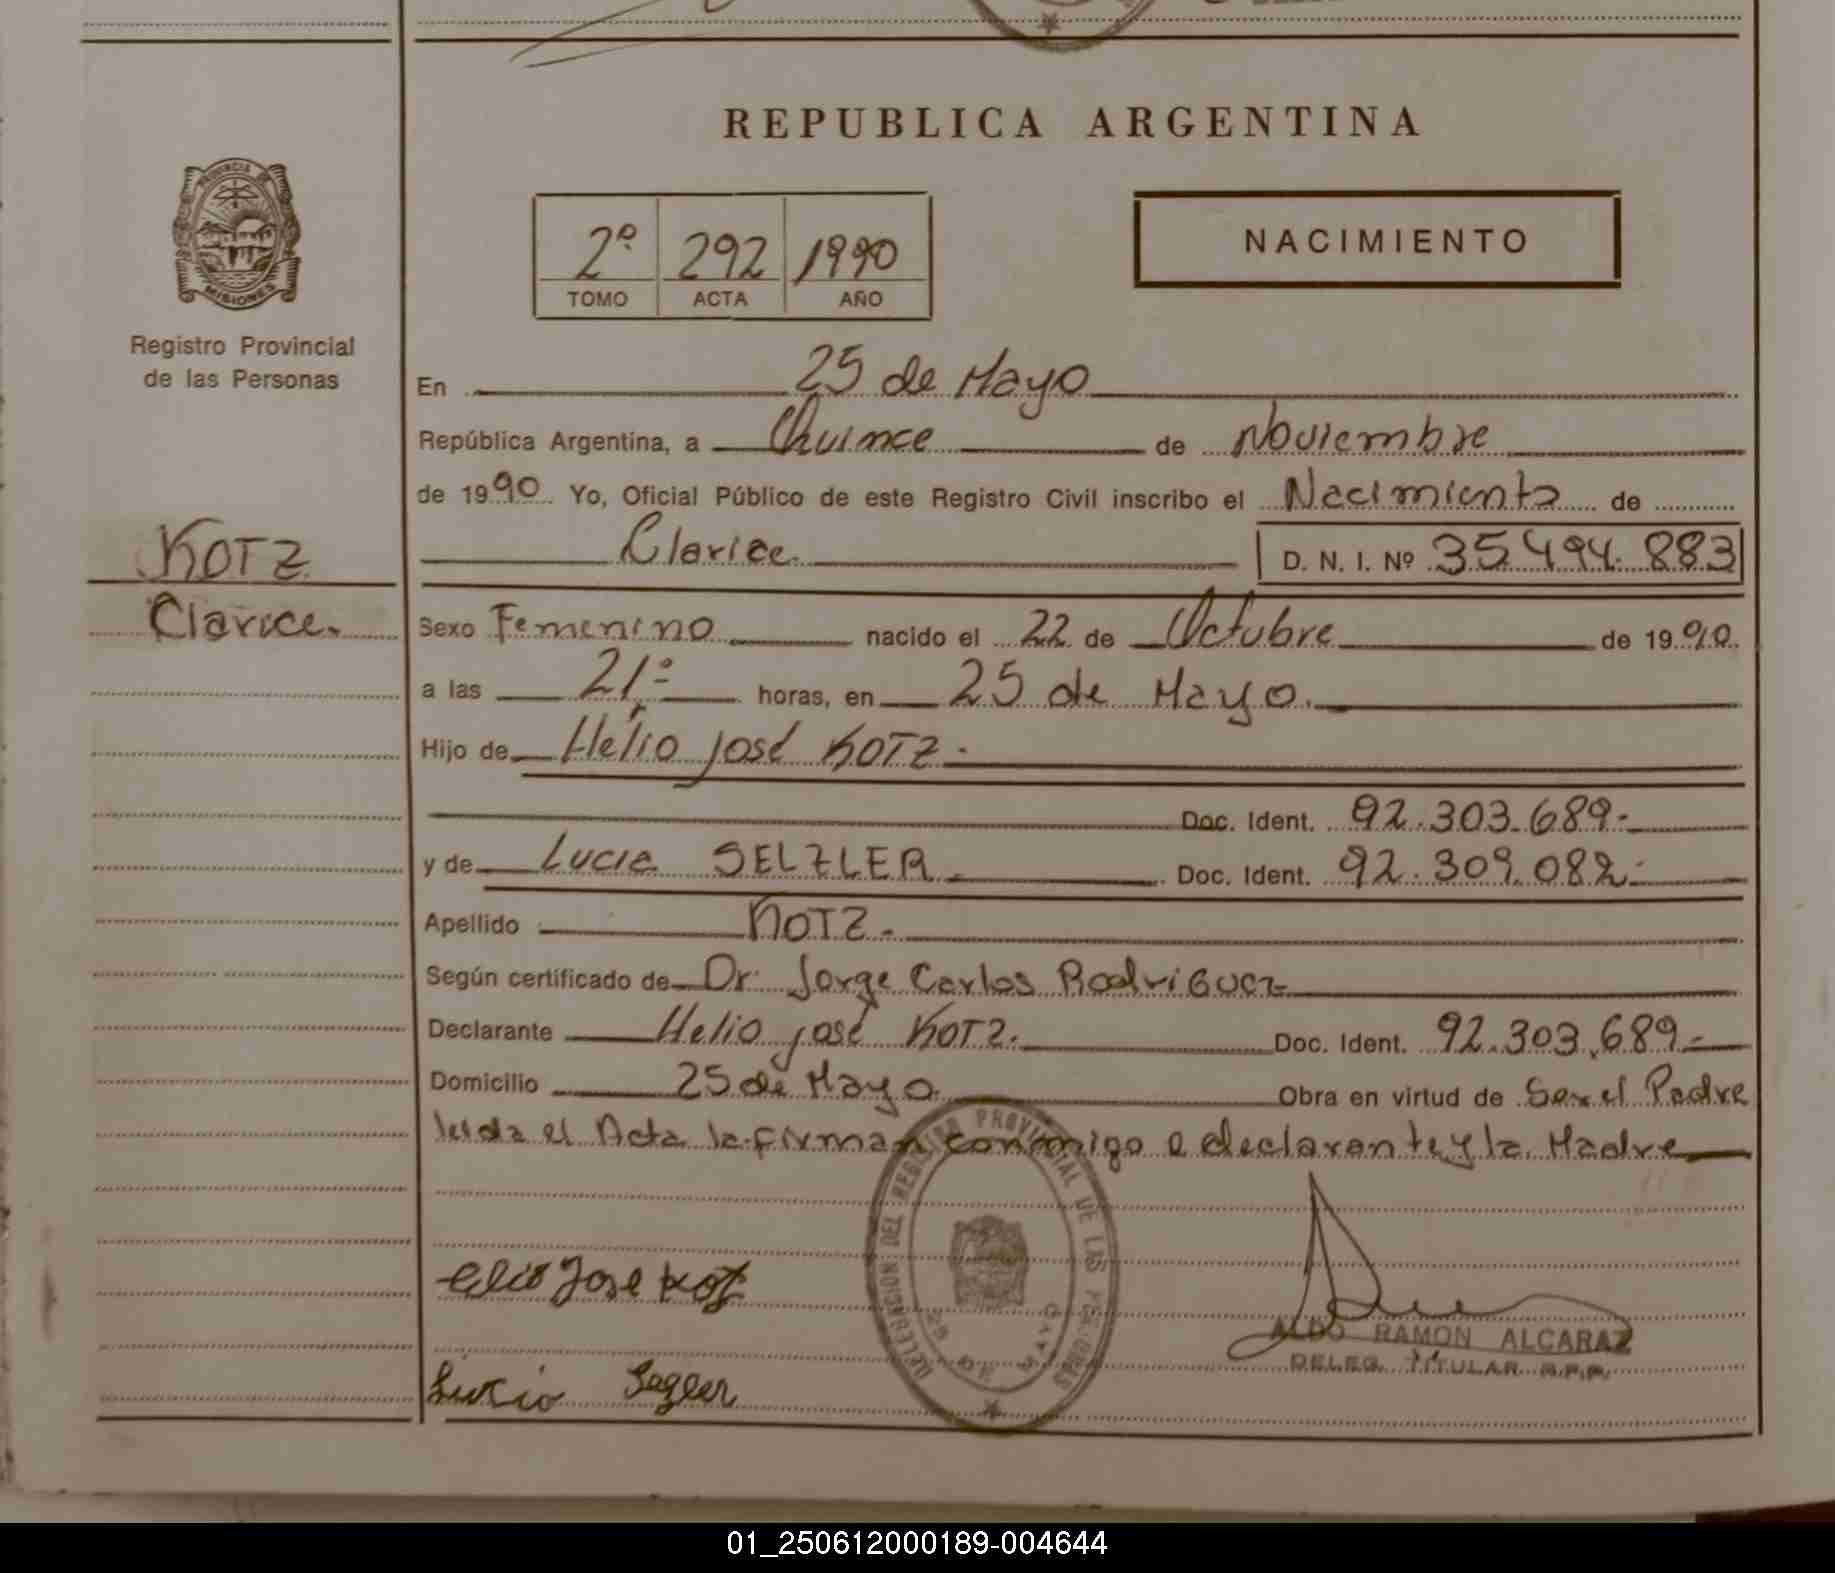 REPUBLICA ARGENTINA
PROVINCIA DE
MISIONES
Registro Provincial
de las Personas
2º 292 1990
TOMO ACTA AÑO
NACIMIENTO
En 25 de Mayo
República Argentina, a Quince de Noviembre
de 1990 Yo, Oficial Público de este Registro Civil inscribo el Nacimiento de
KOTZ
Clarice.
Clarice. D. N. I. Nº 35494.883
Sexo Femenino nacido el 22 de Octubre de 1990.
a las 21º- horas, en 25 de Mayo.
Hijo de Hélio José KOTZ.
Doc. Ident. 92.303.689.-
y de Lucia SELZLER. Doc. Ident. 92.309.082.-
Apellido KOTZ.
Según certificado de Dr. Jorge Carlos Rodriguez
Declarante Helio José KOTZ. Doc. Ident. 92.303.689.-
Domicilio 25 de Mayo. Obra en virtud de Ser el Padre
leida el Acta la firman conmigo e declarante y la Madre
DELEGACION DEL REGISTRO PROVINCIAL DE LAS PERSONAS
25 DE MAYO
Elio Jose Kotz
ALDO RAMON ALCARAZ
DELEG. TITULAR R.P.P.
Lucia Segler
01_250612000189-004644